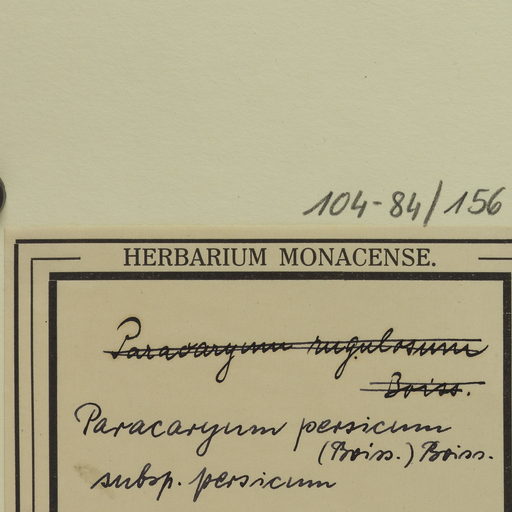 104-84/156
HERBARIUM MONACENSE.
Paracaryum rugulosum
Boiss.
Paracaryum persicum
(Boiss.) Boiss.
subsp. persicum